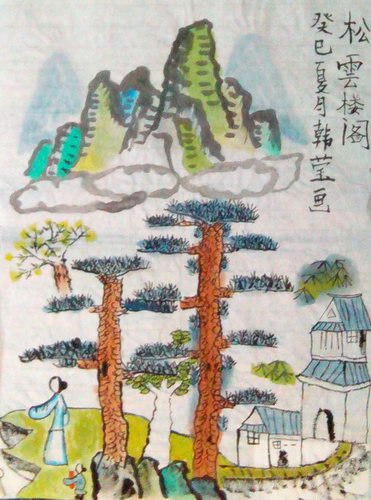 松雲楼阁
癸巳夏月韩莹画